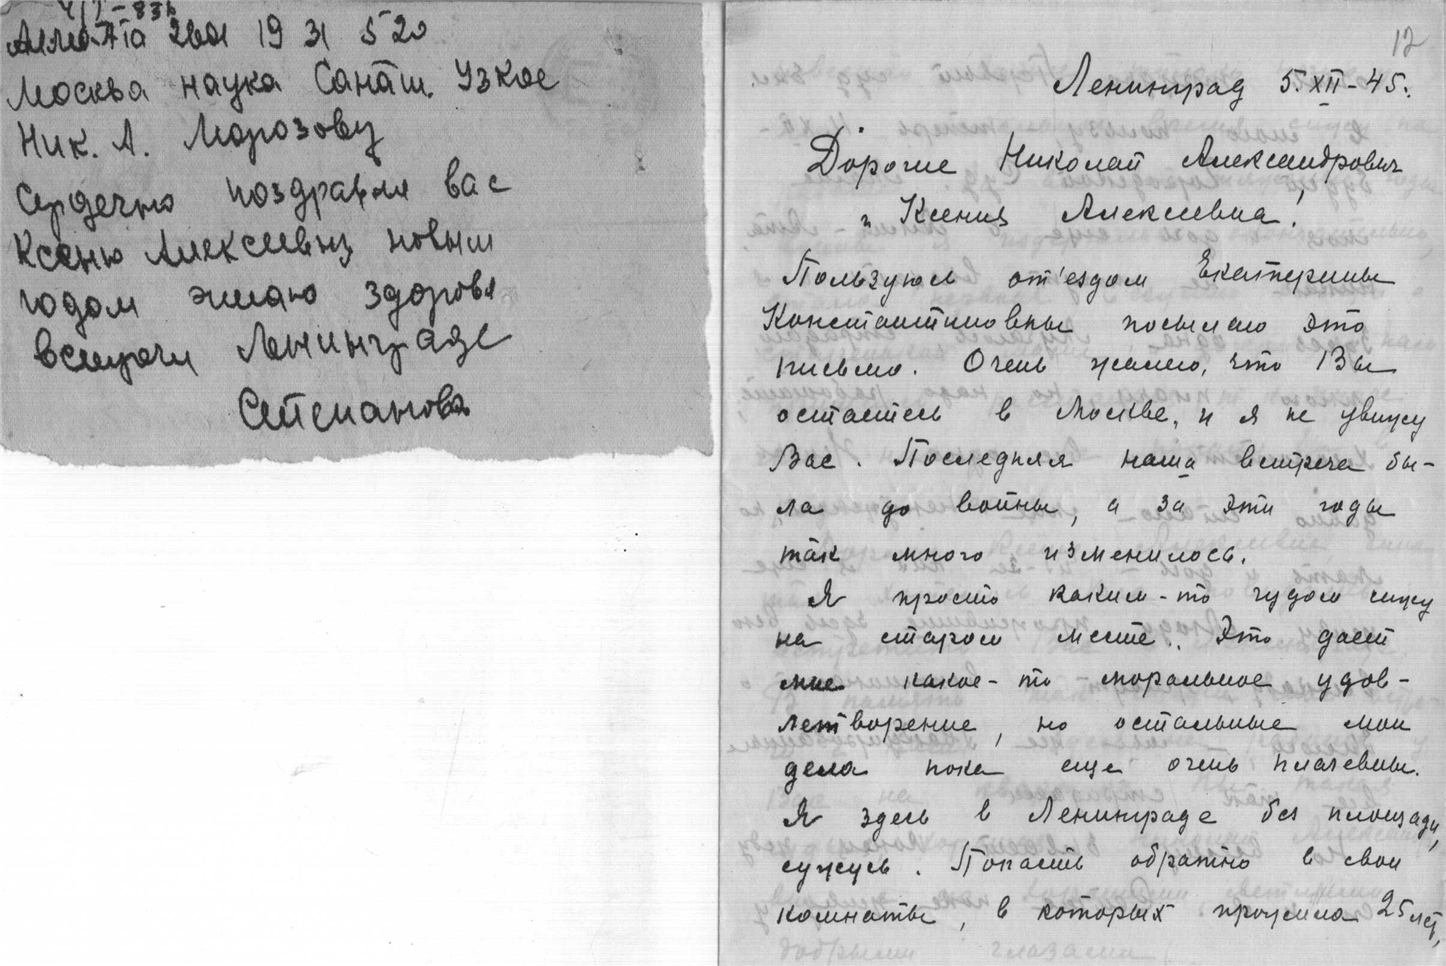 4/I-83ь
Алма Ата 2601 19 31 5 20
Москва наука Санат. Узкое
Ник. А. Морозову
Сердечно поздравля вас
Ксеню Алексеевну новым
годом желаю здоровя
встрочи Ленинграде
Степанова
12
Ленинград 5.XII-45.
Дорогие Николай Александрович
и Ксения Алексеевна!
Пользуюсь от'ездом Екатерины
Константиновны посылаю это
письмо. Очень жалею, что Вы
остаетесь в Москве, и я не увижу
Вас. Последняя наша встреча бы-
ла до войны, а за эти годы
так много изменилось.
Я просто каким-то чудом сижу
на старом месте. Это дает
мне какое-то моральное удов-
летворение, но остальные мои
дела пока еще очень плачевны.
Я здесь в Ленинграде без площади,
сужусь. Попасть обратно в свои
комнаты, в которых прожила 25 лет,